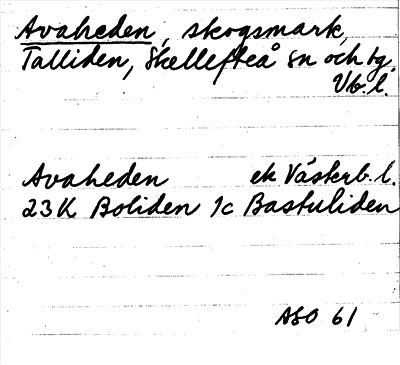 Avaheden, skogsmark,
Talliden, Skellefteå sn och tg.
Vb. l.
Avaheden ek Västerb. l.
23K Boliden 1c Bastuliden
ASO 61